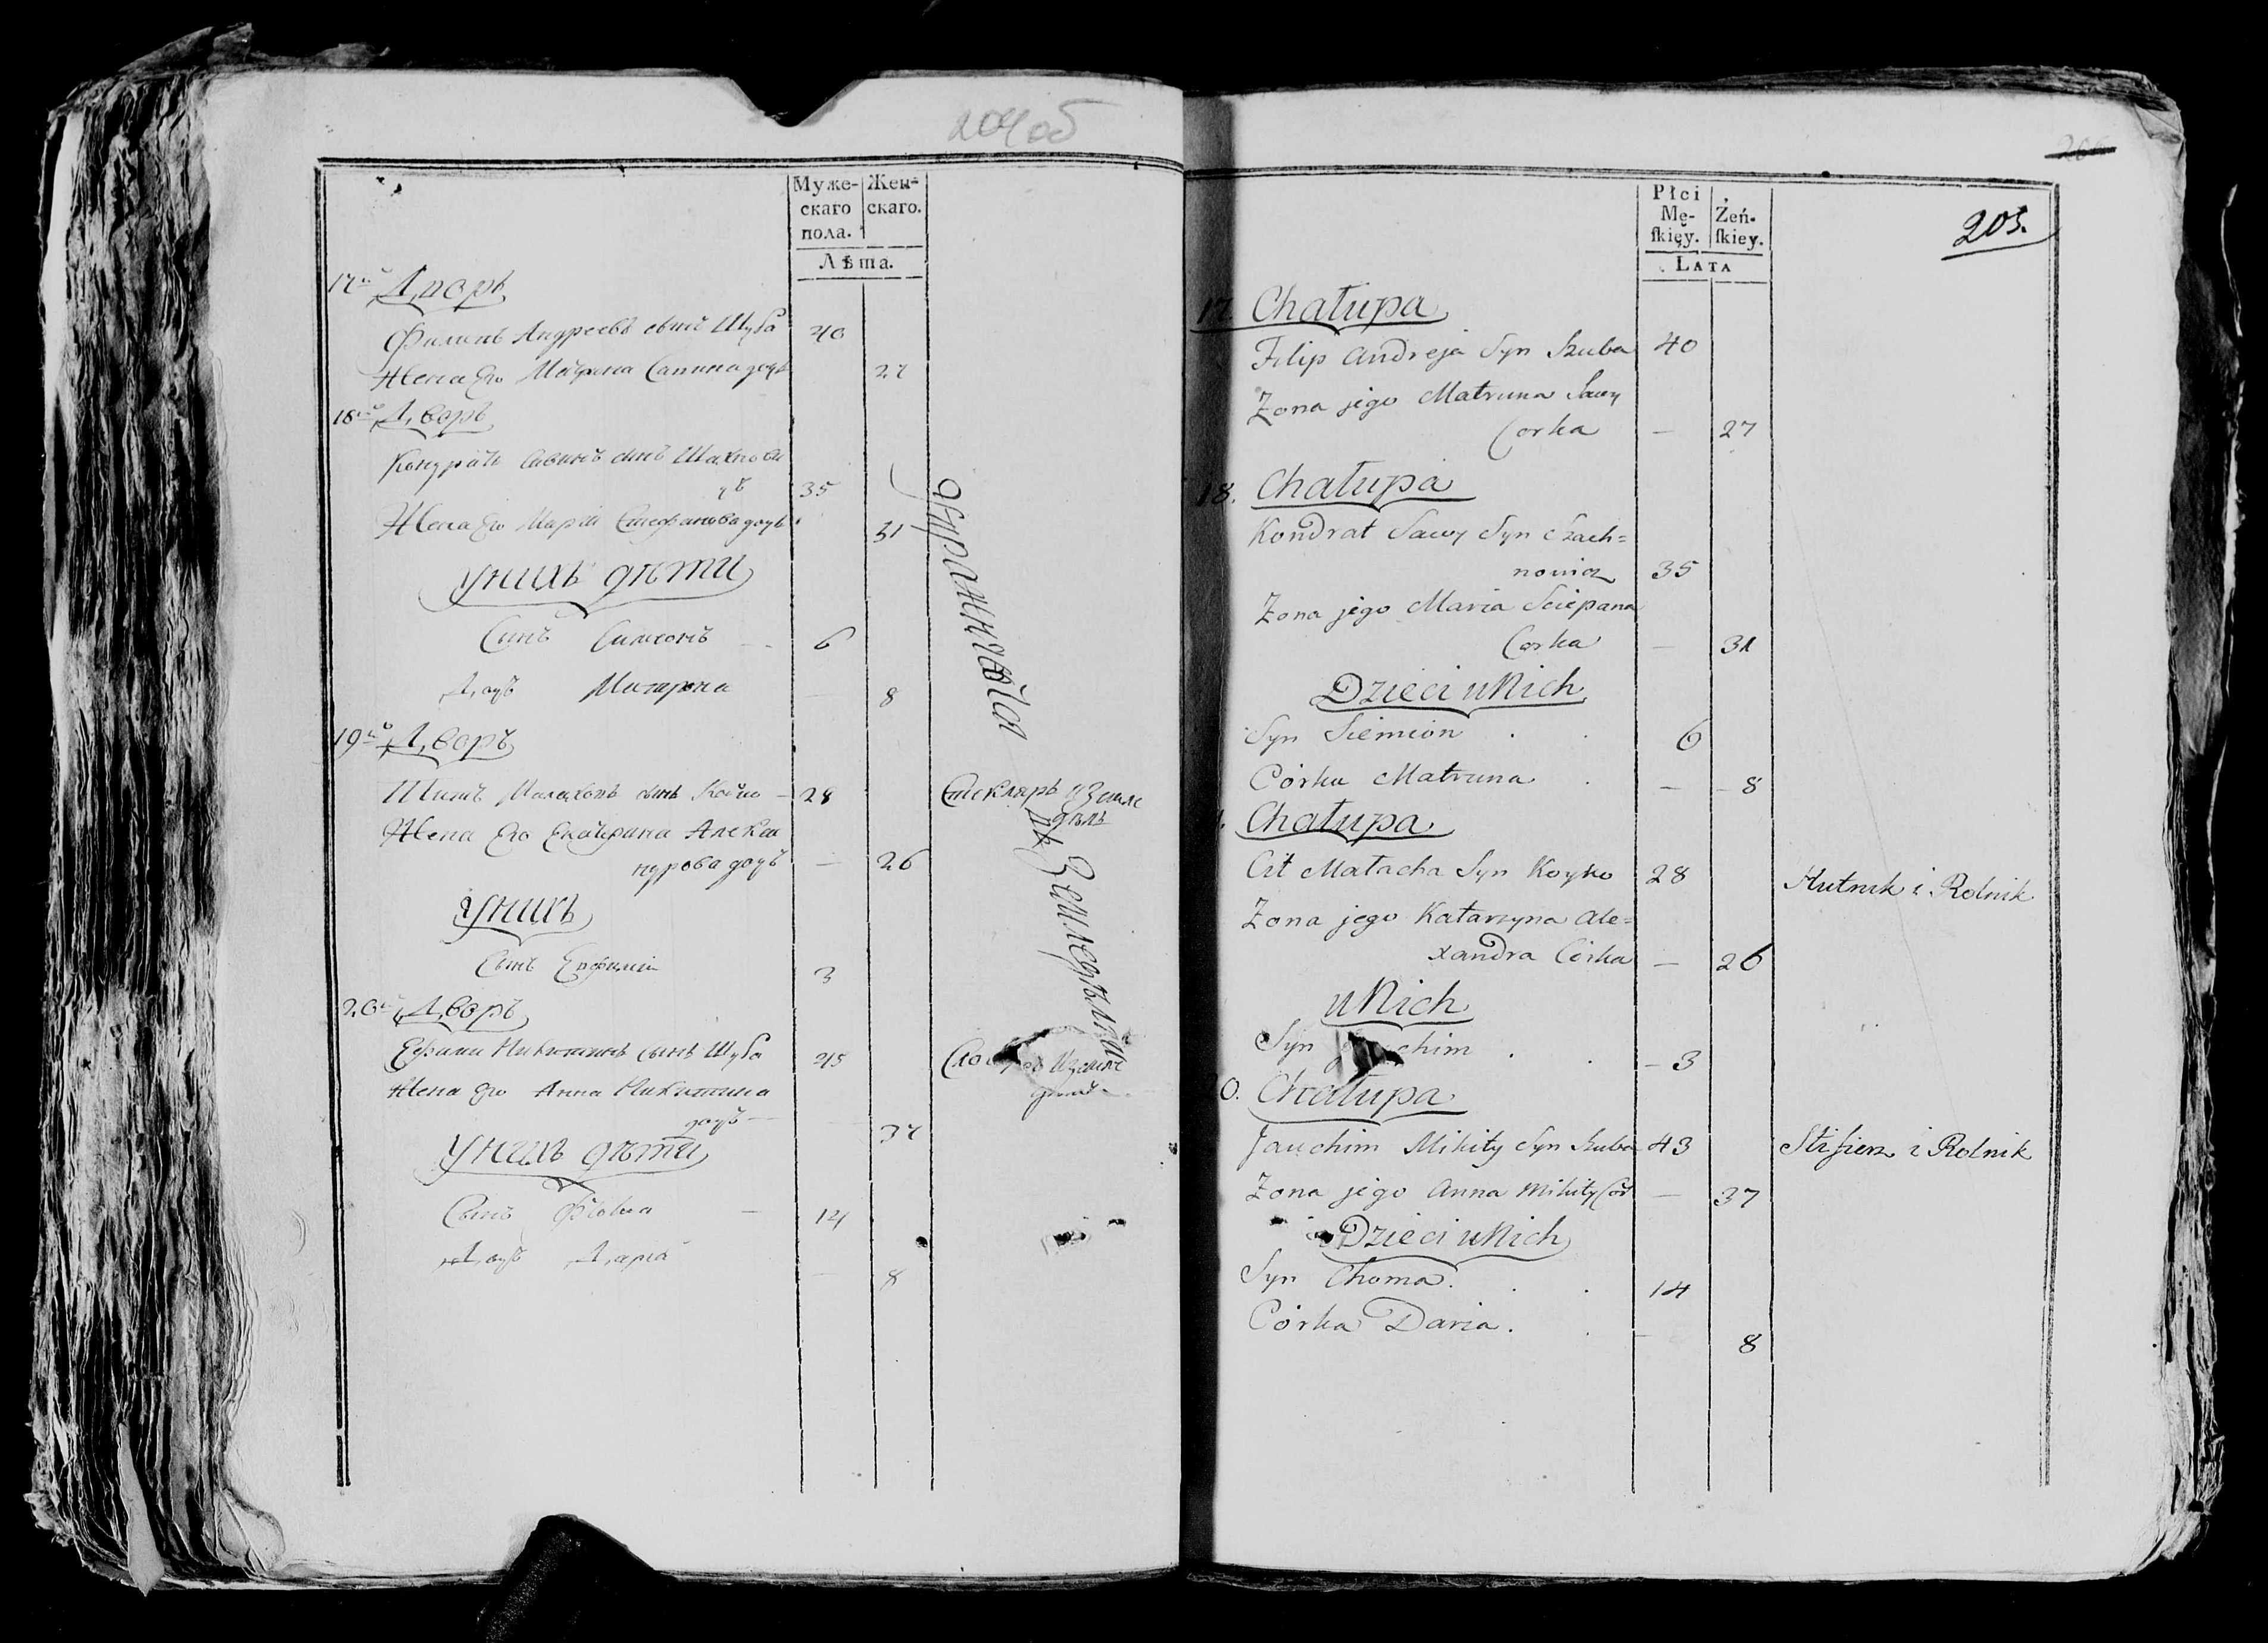 204 об
Муже-
скаго
пола.
Жен-
скаго.
Лѣта.
17й Дворъ
Филипъ Андреевъ сынъ Шуба 40
Жена его Мотрона Савина дочь 27
18й Дворъ
Кондратъ Савинъ сынъ Шахнови
чъ 35
Жена его Марія Стефанова дочь 31
У нихъ дѣти
Синъ Симеонъ 6
Дочь Матрона — 8
19й Дворъ
Титъ Малаховъ синъ Койко — 28
Жена его Екатерина Алекса
ндрова дочь — 26
У нихъ
Сынъ 3
20й Дворъ
Ефимъ Никитинъ сынъ Шуба 45
Жена его Анна Никитина
дочь — 37
У нихъ дѣти
Сынъ Фома — 14
Дочь Дарія — 8
Стекляръ и Земле
дѣлъ
205.
Płci
Mę-
ſkięy.
Żeń-
ſkiey.
Lata
17. Chałupa
Filip Andreja Syn Szuba 40
Zona jego Matruna Sawy
Corka — 27
18. Chałupa
Kondrat Sawy Syn Szach=
nowicz 35
Zona jego Maria Sciepana
Corka — 31
Dzieci u Nich
Syn Siemion . . 6
Córka Matruna . — 8
Chałupa
Cit Małacha Syn Koyko 28 Hutnik i Rolnik
Zona jego Katarzyna Ale=
xandra Córka — 26
u Nich
Syn . . 3
0. Chałupa
Jauchim Mikity Syn Szuba 43 i Rolnik
Zona jego Anna Mikity Cor — 37
Dzieci u Nich
Syn Choma . . . 14
Córka Daria . . — 8